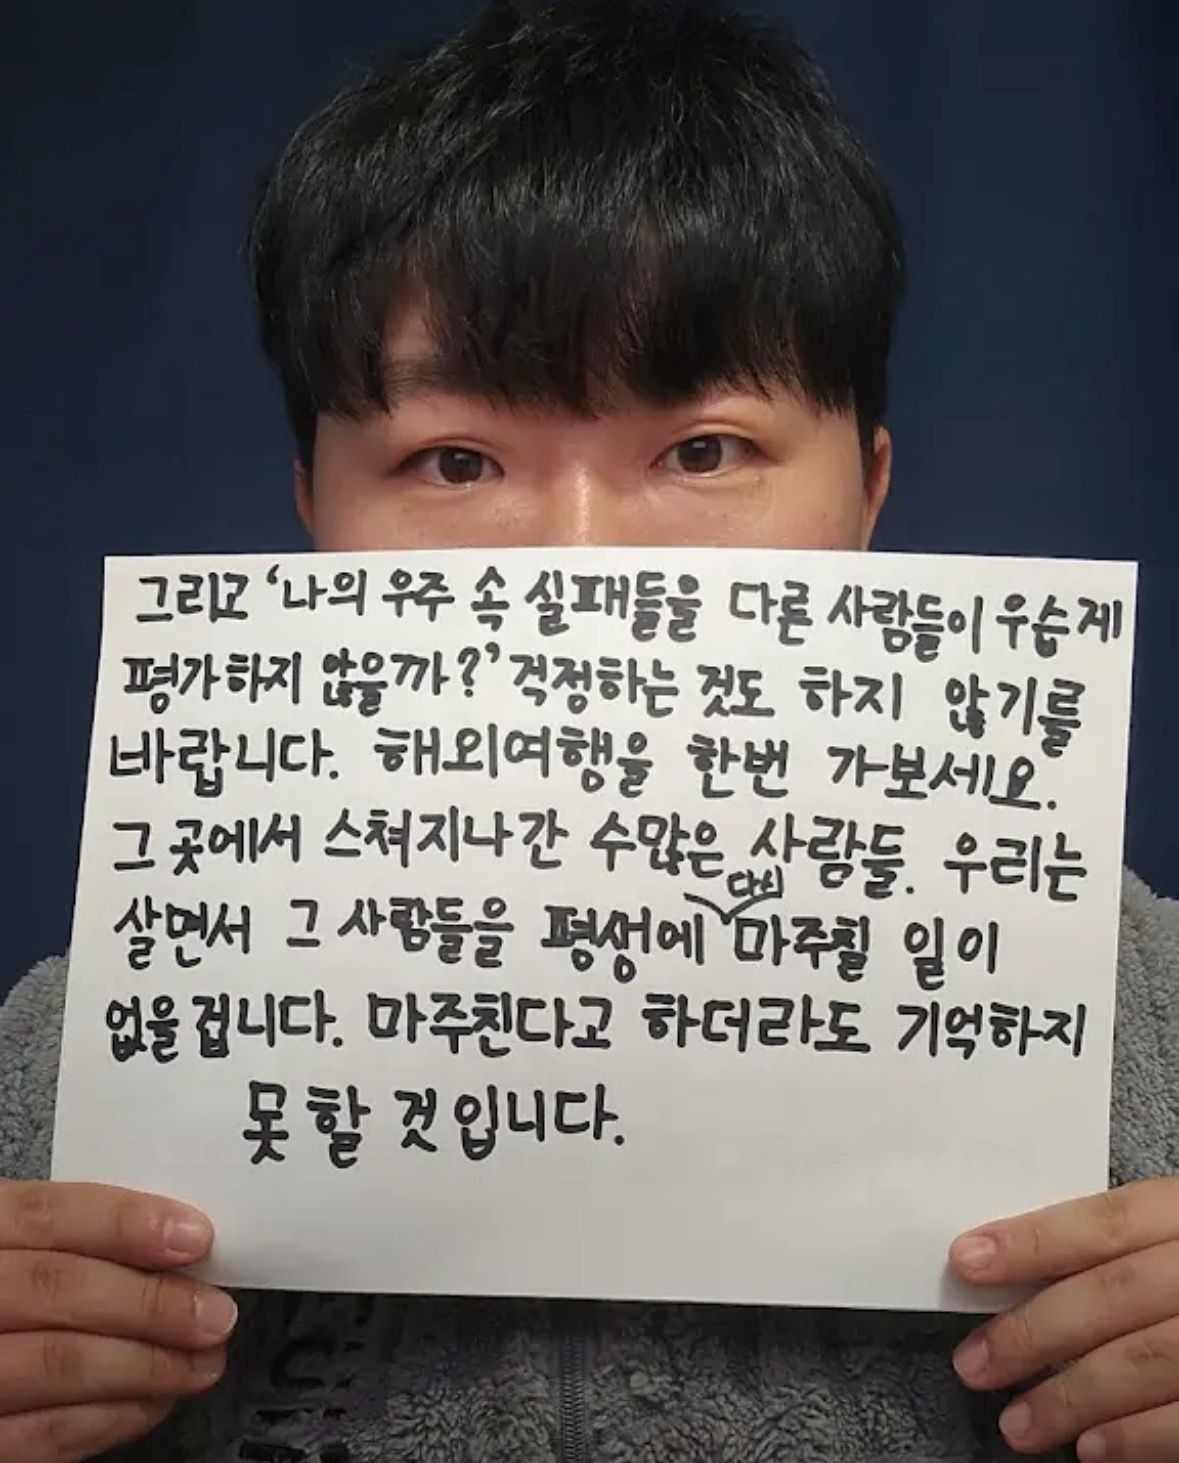 그리고 ‘나의 우주 속 실패들을 다른 사람들이 우습게
평가하지 않을까?’ 걱정하는 것도 하지 않기를
바랍니다. 해외여행을 한번 가보세요.
그 곳에서 스쳐지나간 수많은 사람들. 우리는
살면서 그 사람들을 평생에 다시 마주칠 일이
없을겁니다. 마주친다고 하더라도 기억하지
못할 것입니다.